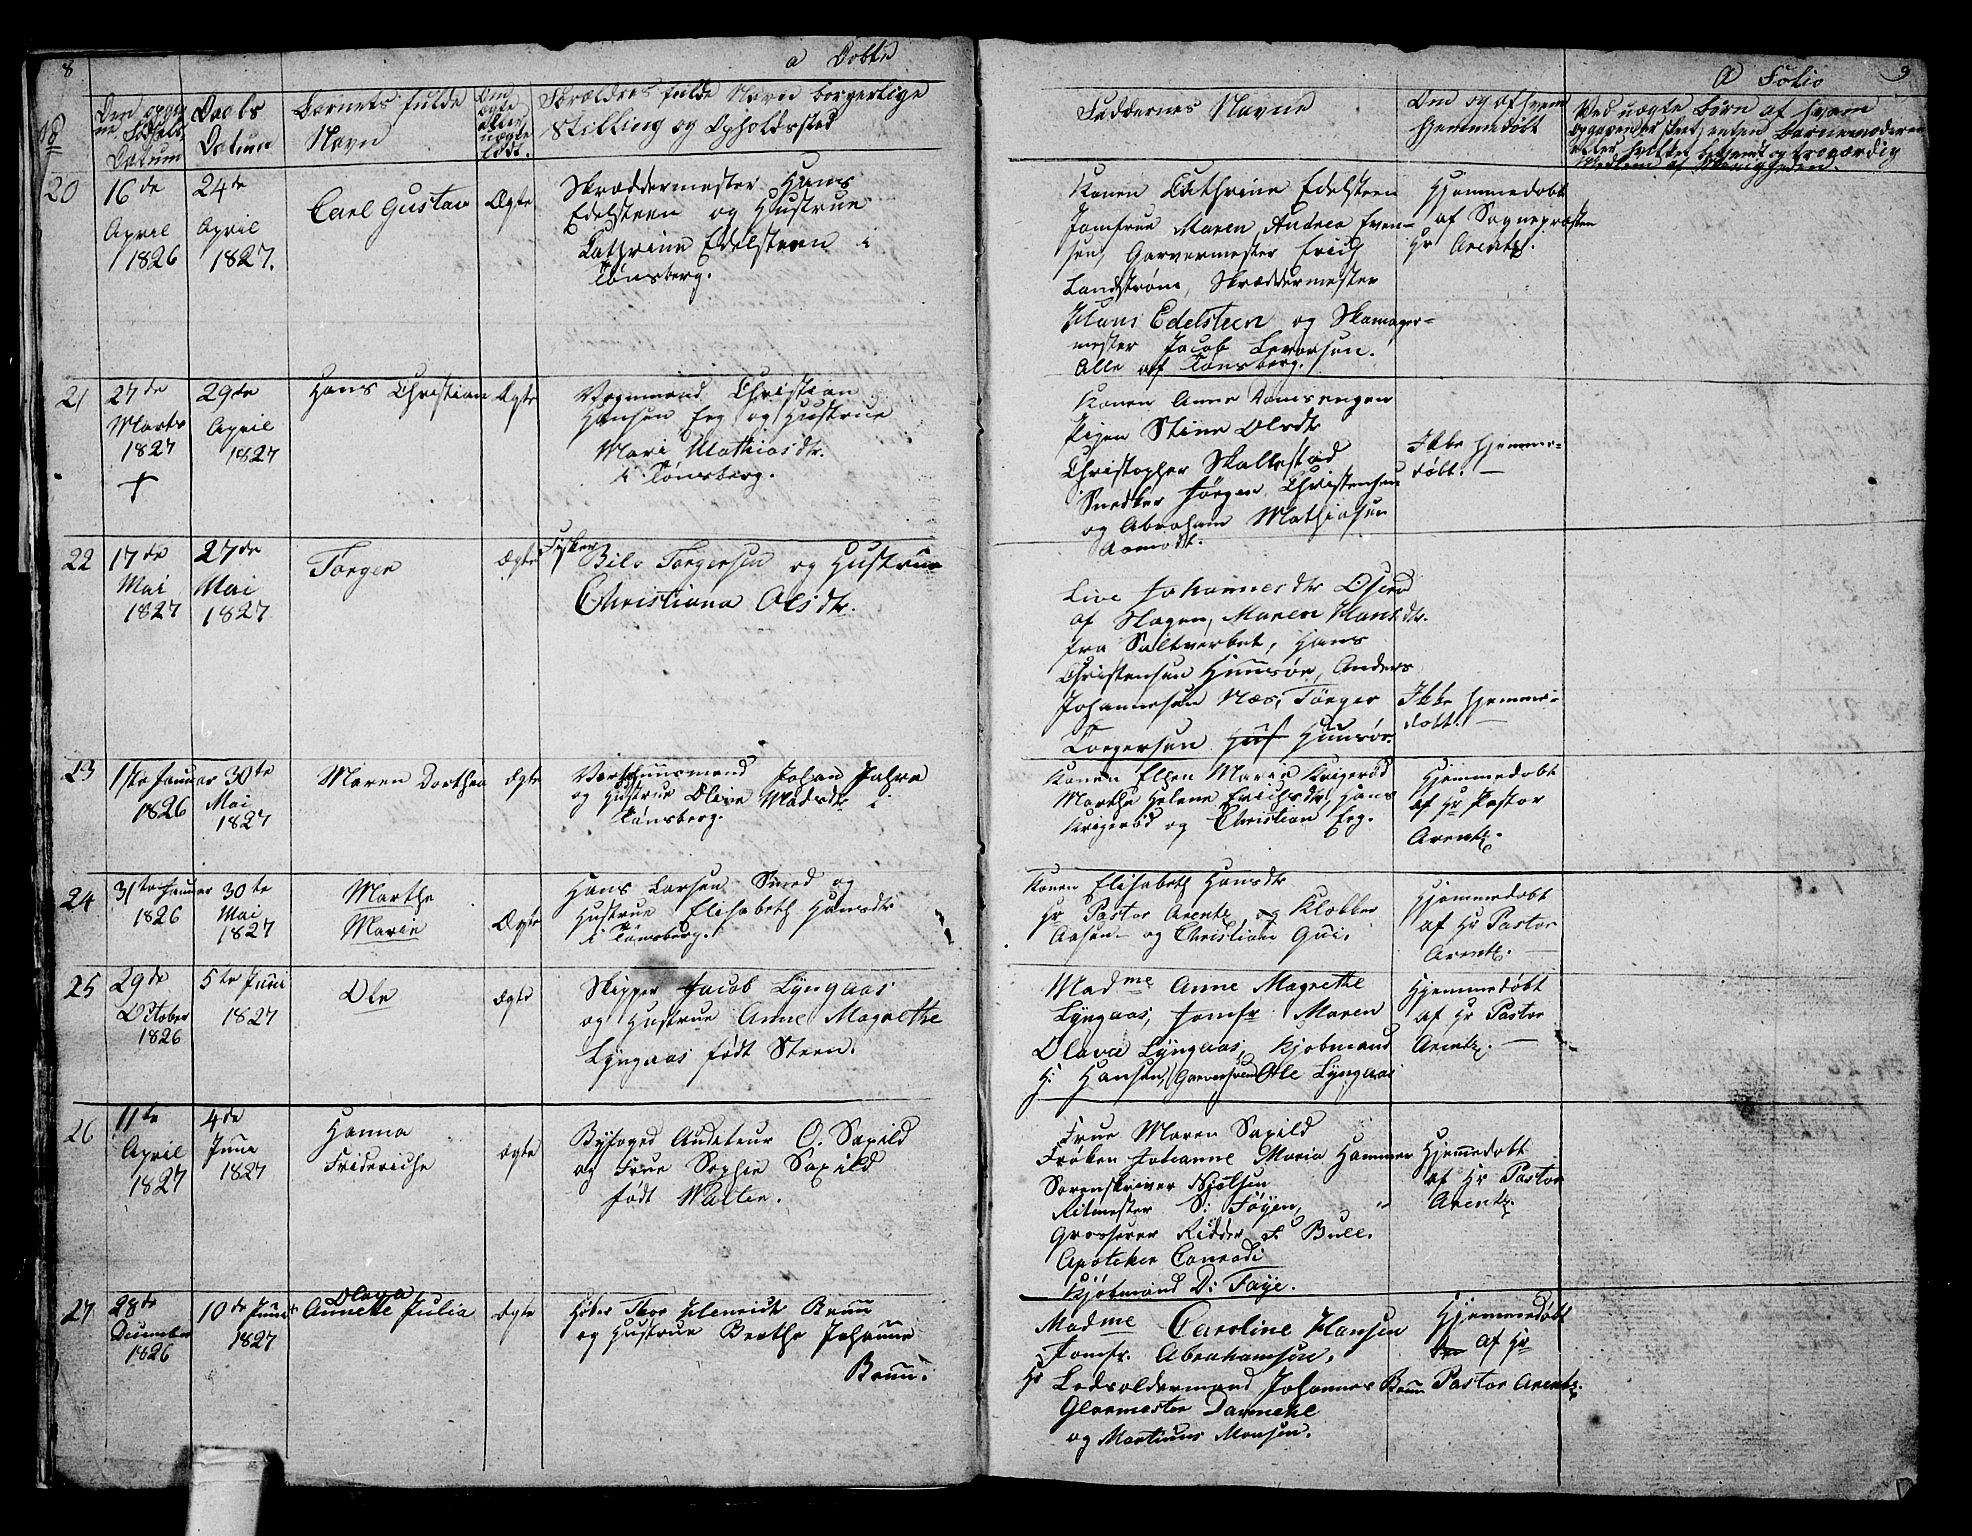 8
a Døbte
No
Den opgivne Fødsels Datum
Daabs Datum
Barnets fulde Navn
Om ægte eller uægte født.
Forældres fulde Navn borgerlige
Stilling og Opholdssted
20
16de
April
1826
24de
April
1827.
Carl Gustav
Ægte
Skræddermester Hans
Edelsteen og Hustrue
Cathrine Edelsteen i
Tønsberg.
21
27de
Marts
1827
+
29de
April
1827
Hans Christian
Ægte
Vognmand Christian
Hansen Eeg og Hustrue
Mari Mathiasdtr.
i Tønsberg.
22
17de
Mai
1827
27de
Mai
1827
Törger
Ægte
Fisker
Nils Torgersen og Hustrue
Christiana Olsdtr.
23
1ste Januar
1826
30te
Mai
1827
Maren Dorthea
Ægte
Vertshuusmand Johan Jahre
og Hustrue Olive Madsdtr i
Tønsberg.
24
31te Januar
1826
30te
Mai
1827
Marthe
Marie
Ægte
Hans Larsen Smed og
Hustrue Elisabeth Hansdtr
i Tønsberg.
25
29de
October
1826
5te Juni
1827
Ole
Ægte
Skipper Jacob Lyngaas
og Hustrue Anne Magrethe
Lyngaas født Steen.
26
11te
April
1827
4de
Juni
1827
Hanna
Frideriche
Ægte
Byfoged Auditeur O. Saxild
og Frue Sophie Saxild
født
27
28de
December
1826
10de Juni
1827
Olava
Annette Julia
Ægte
Thor Henrich Bruun
og Hustrue Berthe Johanne
Bruun.
a Folio
9
Faddernes Navne
Om og af hvem
Hjemmedøbt
Ved uægte Børn af hvem
Opgaven er skeet, enten Barnemoderen
eller hvilket bekiendt og troværdig
Medlem af Menigheden.
Konen Cathrine Edelsteen
Jomfrue Maren Andrea Even-
sen, Garvermester Erich
Landstrøm, Skræddermester
Hans Edelsteen og Skomager-
mester Jacob Levorsen.
Alle af Tønsberg.
Hjemmedøbt
af Sognepræsten
Hr Arentz.
Konen Anne Ramsengen
Pigen Stine Olsdtr
Christopher Skallestad
Snedker Jörgen Christensen
og Abraham Mathiasen
Aamodt.
Ikke Hjemme-
døbt.
Live Johannesdtr Oserød
af Slagen, Maren Hansdtr.
fra Saltverket, Hans
Christensen Huusøe, Anders
Johannesen Næs, Törger
Torgersen Huusøe.
Ikke Hjemme-
døbt.
Konen Ellen Marie Krigerød
Marthe Helene Erichsdtr, Hans
Krigerød og Christian Eeg.
Hjemmedøbt
af Hr Pastor
Arentz.
Konen Elisabeth Hansdtr
Hr Pastor Arentz, og Klokker
Aasen og Christian Gui.
Hjemmedøbt
af Hr Pastor
Arentz.
Madme Anne Magrethe
Lyngaas, Jomfr Maren
Olava Lyngaas, Kjøbmand
H: Hansen, Garversvend Ole Lyngaas
Hjemmedøbt
af Hr Pastor
Arentz.
Frue Maren Saxild
Frøken Johanne Maria Hammer
Sorenskriver
Ritmester S: Føyen,
Grosserer Ridder F. Bull.
Apoteker Conradi
Kjøbmand D: Faye.
Hjemmedøbt
af Hr Pastor
Arentz.
Madme Caroline Hansen
Jomfr. Abrahamsen,
Hr Lodsoldermand Johannes Bruun
Glarmester Dannehl
og Martinus Monsen.
Hjemmedøbt
af Hr
Pastor Arentz.